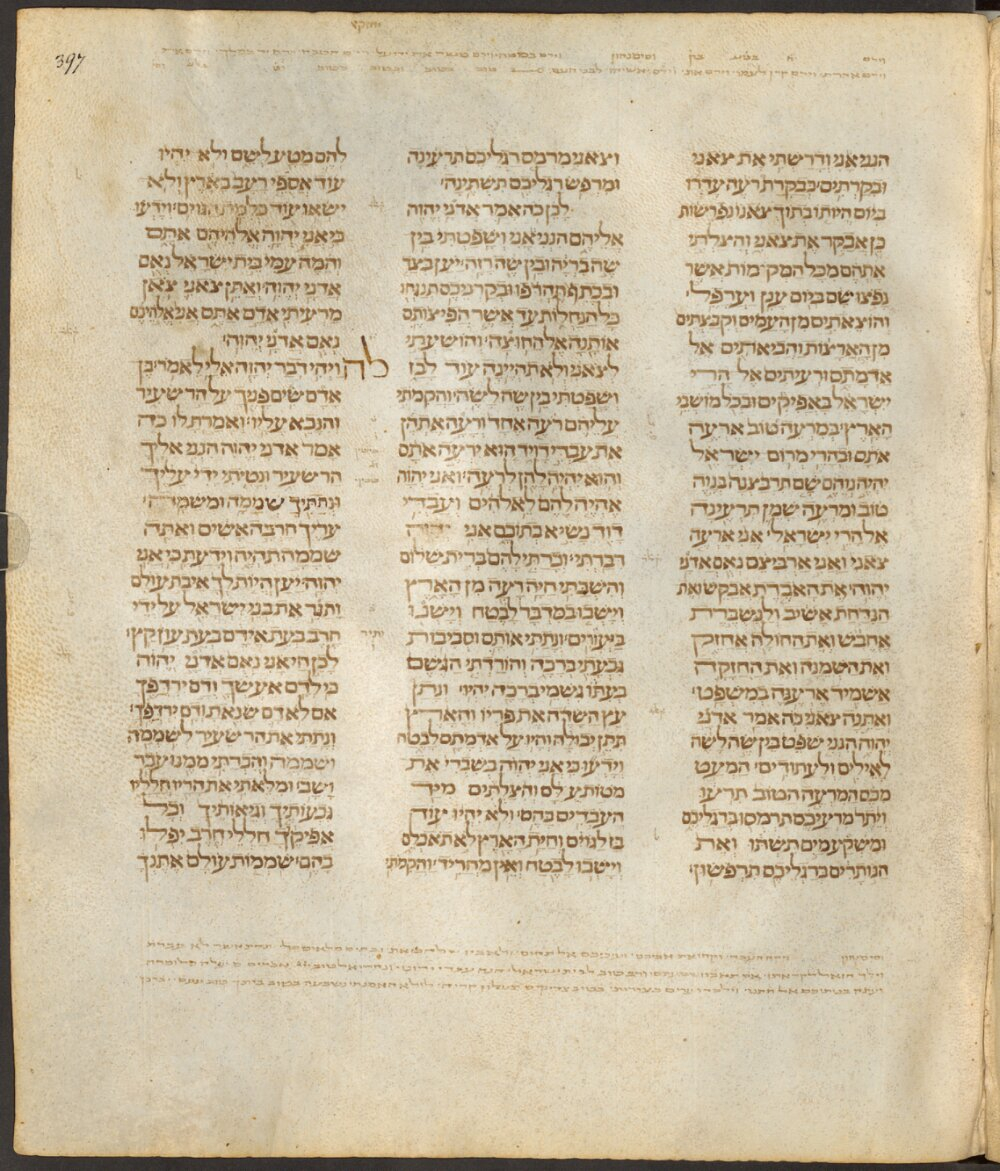 397
יחזק׳
הנני אני ודרשתי את צאני
ובקרתים כבקרת רעה עדרו
ביום היותו בתוך צאנו נפרשות
כן אבקר את צאני והצלתי
אתהם מכל המקומת אשר
נפצו שם ביום ענן וערפל׃
והוצאתים מן העמים וקבצתים
מן הארצות והביאתים אל
אדמתם ורעיתים אל הרי
ישראל באפיקים ובכל מושבי
הארץ׃ במרעה טוב ארעה
אתם ובהרי מרום ישראל
יהיה נוהם שם תרבצנה בנוה
טוב ומרעה שמן תרעינה
אל הרי ישראל׃ אני ארעה
צאני ואני ארביצם נאם אדני
יהוה׃ את האבדת אבקש ואת
הנדחת אשיב ולנשברת
אחבש ואת החולה אחזק
ואת השמנה ואת החזקה
אשמיד ארענה במשפט׃
ואתנה צאני כה אמר אדני
יהוה הנני שפט בין שה לשה
לאילים ולעתודים׃ המעט
מכם המרעה הטוב תרעו
ויתר מרעיכם תרמסו ברגליכם
ומשקע מים תשתו ואת
הנותרים ברגליכם תרפשון׃
וצאני מרמס רגליכם תרעינה
ומרפש רגליכם תשתינה׃
לכן כה אמר אדני יהוה
אליהם הנני אני ושפטתי בין
שה בריה ובין שה רזה׃ יען בצד
ובכתף תהדפו ובקרניכם תנגחו
כל הנחלות עד אשר הפיצותם
אותנה אל החוצה׃ והושעתי
לצאני ולא תהיינה עוד לבז
ושפטתי בין שה לשה׃ והקמתי
עליהם רעה אחד ורעה אתהן
את עבדי דויד הוא ירעה אתם
והוא יהיה להן לרעה׃ ואני יהוה
אהיה להם לאלהים ועבדי
דוד נשיא בתוכם אני יהוה
דברתי׃ וכרתי להם ברית שלום
והשבתי חיה רעה מן הארץ
וישבו במדבר לבטח וישנו
ביעורים׃ ונתתי אותם וסביבות
גבעתי ברכה והורדתי הגשם
בעתו גשמי ברכה יהיו׃ ונתן
עץ השדה את פריו והארץ
תתן יבולה והיו על אדמתם לבטח
וידעו כי אני יהוה בשברי את
מטות עלם והצלתים מיד
העבדים בהם׃ ולא יהיו עוד
בז לגוים וחית הארץ לא תאכלם
וישבו לבטח ואין מחריד׃ והקמתי
יתיר
להם מטע לשם ולא יהיו
עוד אספי רעב בארץ ולא
ישאו עוד כלמת הגוים׃ וידעו
כי אני יהוה אלהיהם אתם
והמה עמי בית ישראל נאם
אדני יהוה׃ ואתן צאני צאן
מרעיתי אדם אתם אני אלהיכם
נאם אדני יהוה׃
לה
ויהי דבר יהוה אלי לאמר׃ בן
אדם שים פניך על הר שעיר
והנבא עליו׃ ואמרת לו כה
אמר אדני יהוה הנני אליך
הר שעיר ונטיתי ידי עליך
ונתתיך שממה ומשמה׃
עריך חרבה אשים ואתה
שממה תהיה וידעת כי אני
יהוה׃ יען היות לך איבת עולם
ותגר את בני ישראל על ידי
חרב בעת אידם בעת עון קץ׃
לכן חי אני נאם אדני יהוה
כי לדם אעשך ודם ירדפך
אם לא דם שנאת ודם ירדפך׃
ונתתי את הר שעיר לשממה
ושממה והכרתי ממנו עבר
ושב׃ ומלאתי את הריו חלליו
גבעותיך וגיאותיך וכל
אפיקיך חללי חרב יפלו
בהם׃ שממות עולם אתנך